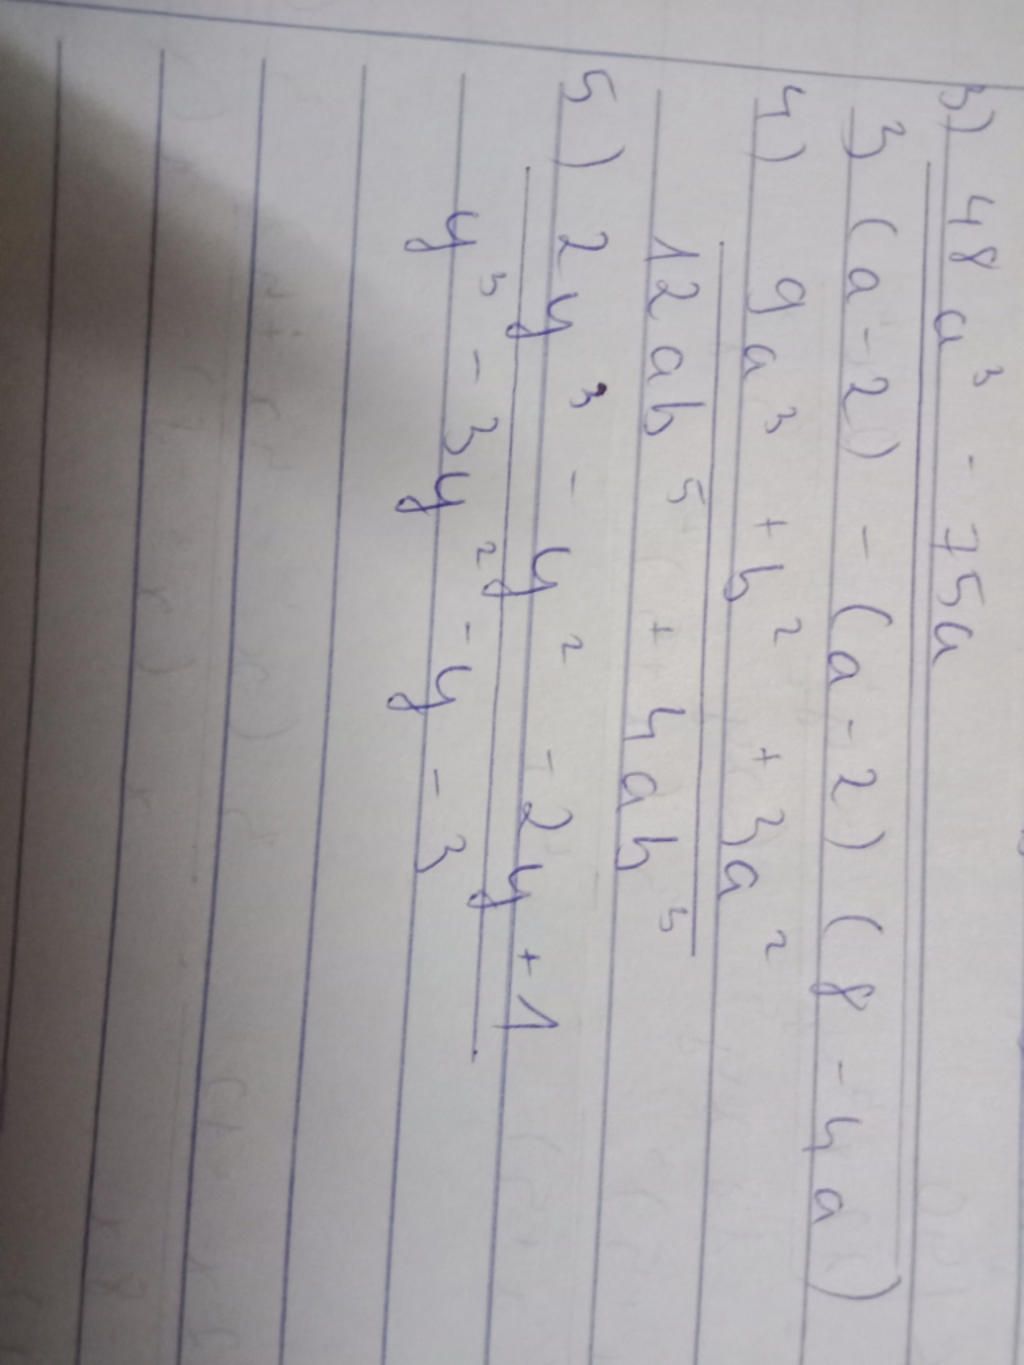 3) 48a³ - 75a
3(a-2) - (a-2)(8-4a)
4) 9a³ + b² + 3a²
12ab⁵ + 4ab³
5) 2y³ - y² - 2y + 1
y³ - 3y² - y - 3